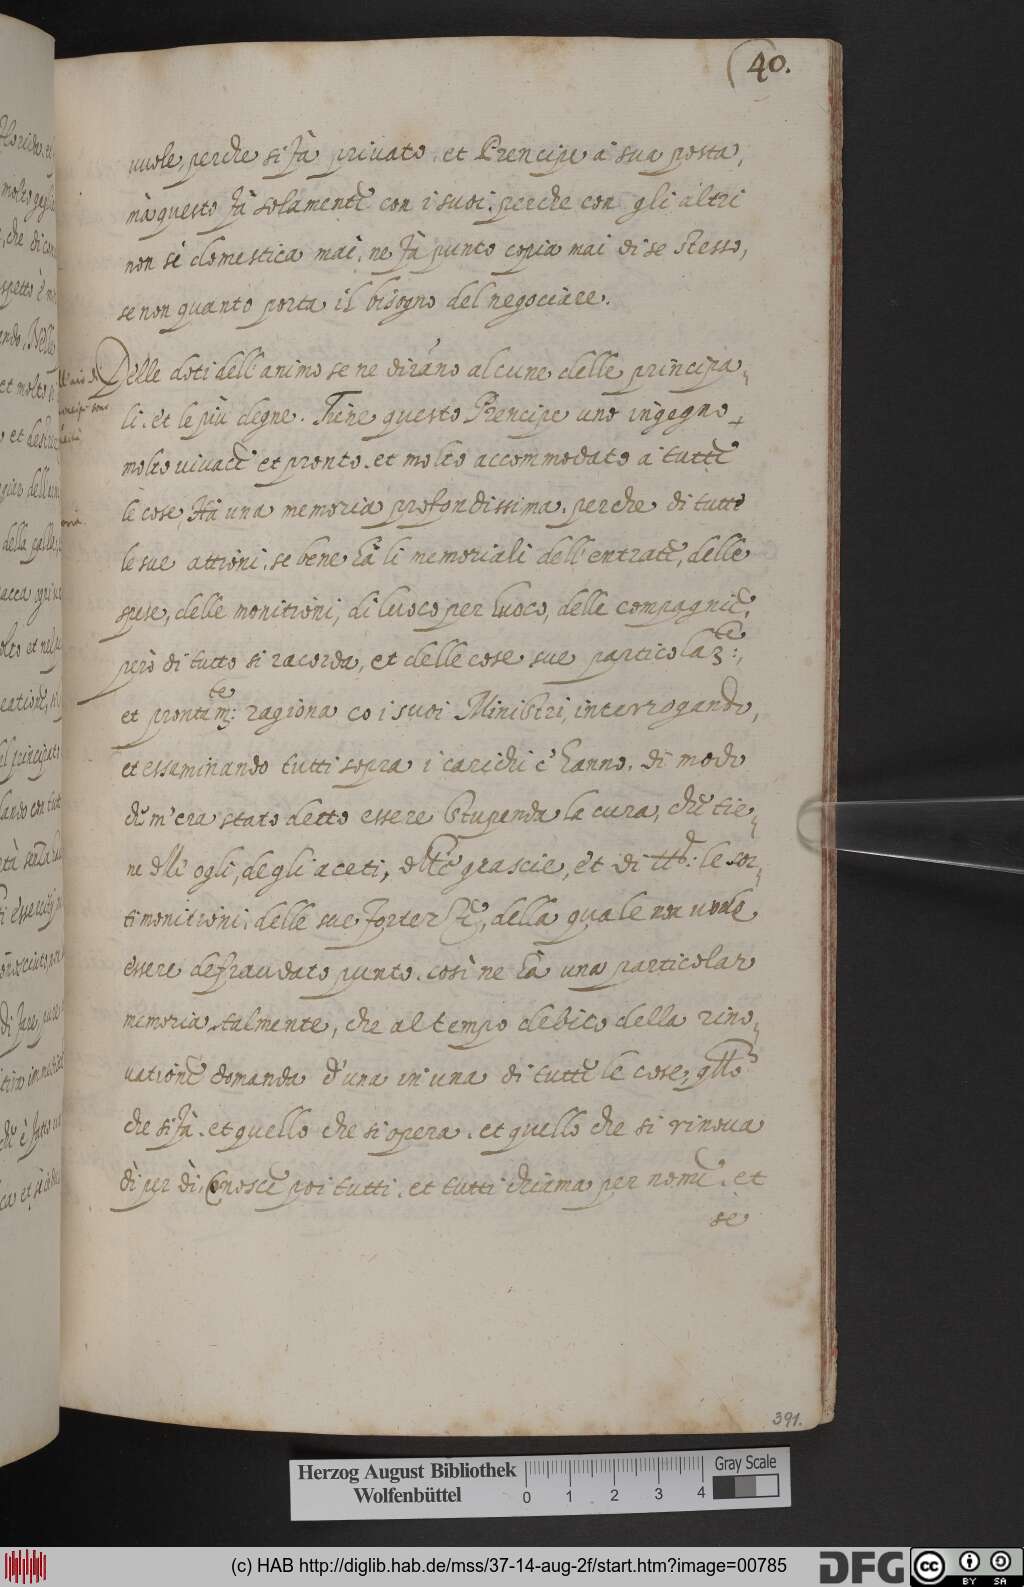 40.
uuole, perche si fà priuato. et Prencipe à sua posta,
mà questo fà solamente con i suoi. perche con gli altri
non si domestica mai. ne fà punto copia mai di se stesso,
se non quanto porta il bisogno del negociare.
Delle doti dell'animo se ne dirano alcune delle principa-
li. et le più degne. Tiene questo Prencipe uno ingegno
molto viuace et pronto. et molto accommodato à tutte
le cose, Hà una memoria profondissima. perche di tutte
le sue attioni. se bene hà li memoriali dell'entrate, delle
spese, delle monitioni, di luoco per luoco, delle compagnie,
però di tutto si racorda, et delle cose sue particolar:te,
et prontam:te ragiona co i suoi Ministri, interrogando,
et essaminando tutti sopra i carichi c'hanno. di modo
che m'era stato detto essere stupenda la cura, che tie-
ne dell'ogli, degli aceti, delle grascie, et di tt:de le sor-
ti monitioni. delle sue fortezze, della quale non uuole
essere defraudato punto. così ne hà una particolar
memoria talmente, che al tempo debito della rino-
uatione domanda d'una in una di tutte le cose, qllo
che si fà. et quello che si opera. et quello che si rinoua
dì per dì. Conosce poi tutti. et tutti chiama per nome. et
se
391.
Herzog August Bibliothek
Wolfenbüttel
0 1 2 3 4
Gray Scale
(c) HAB http://diglib.hab.de/mss/37-14-aug-2f/start.htm?image=00785
DFG
cc BY SA